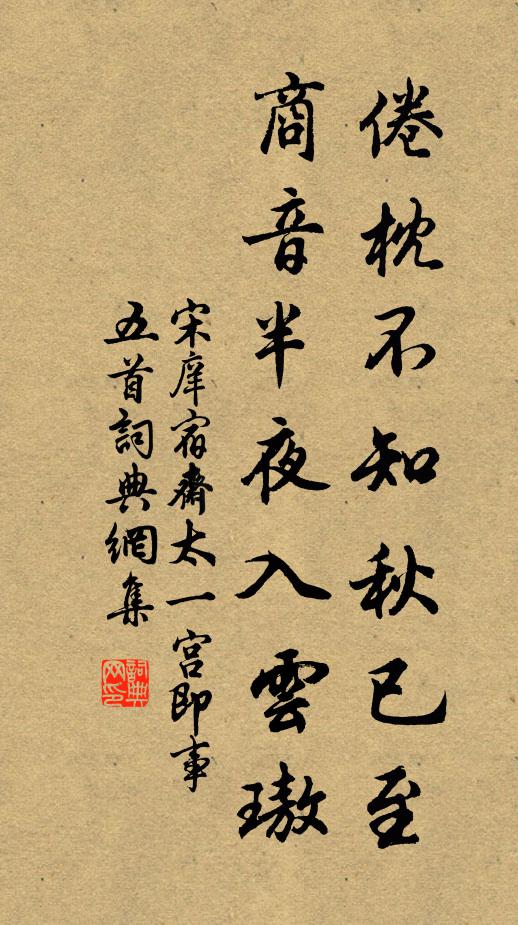 倦枕不知秋已至
商音半夜入雲璈
宋庠宿齋太一宮即事
五首詞典網集
詞典網印